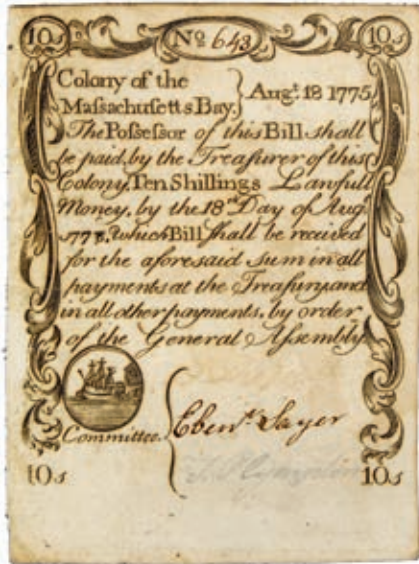 10s No 643 10s
Colony of the
Massachusetts Bay. } Augt. 18 1775
The Possessor of this Bill shall
be paid, by the Treasurer of this
Colony, Ten Shillings Lawfull
Money, by the 18th Day of Augt.
1778. which Bill shall be received
for the aforesaid sum in all
payments at the Treasury and
in all other payments, by order
of the General Assembly
Committee. { Ebenr. Sayer
10s 10s